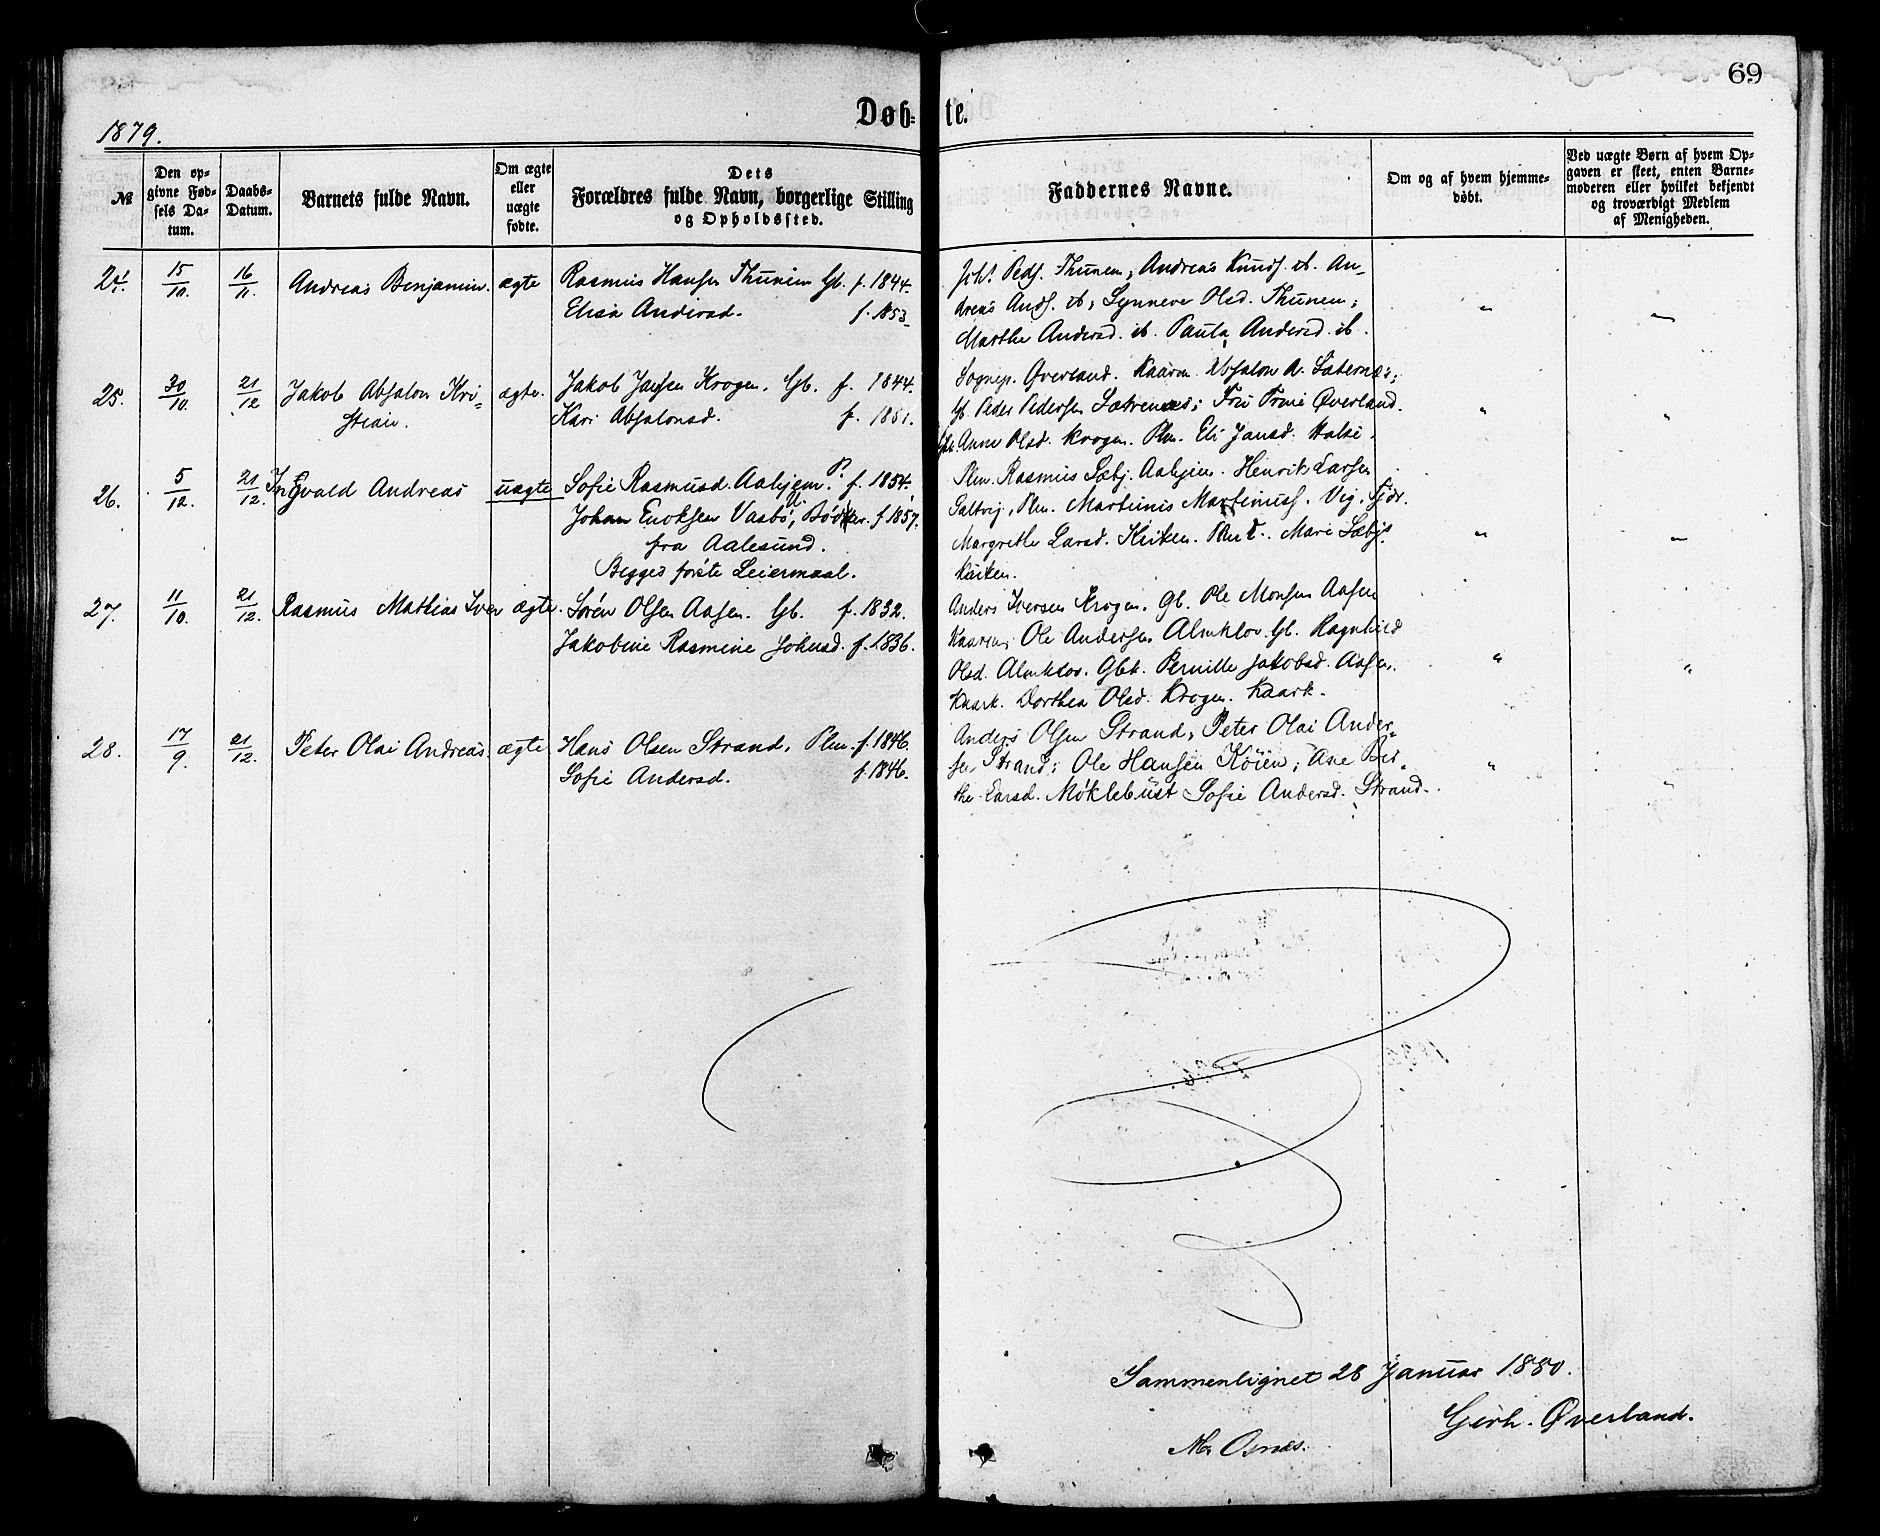 69
Døb- te.
1879.
№
Den opgivne Fødsels Datum.
Daabs-Datum.
Barnets fulde Navn.
Om ægte eller uægte fødte.
Dets Forældres fulde Navn, borgerlige Stilling og Opholdssted.
Faddernes Navne.
Om og af hvem hjemmedøbt.
Ved uægte Børn af hvem Opgaven er skeet, enten Barnemoderen eller hvilket bekjendt og troværdigt Medlem af Menigheden.
24. 15/10. 16/11. Andreas Benjamin. ægte Rasmus Hansen Thunem Gb. f. 1844.
Elisa Andersd. f. 1853
Joh. Peds. Thunem; Andreas Knuds. ib. An-
dreas Ands. ib; Synneve Olsd. Thunem;
Marthe Andersd. ib. Paula Andersd. ib.
" "
25. 30/10. 21/12 Jakob Absalon Kri- ægte. Jakob Jansen Krogen. Gb. f. 1844.
stian. Kari Absalonsd. f. 1851.
Sognep. Øverland. Kaarm. Absalon A. Sætrenæs;
Gb. Peder Pedersen Sætrenæs; Fru Trine Øverland.
Gbk. Anne Olsd. Krogen. Pln. Eli Jansd. Halse.
" "
26. 5/12. 21/12. Ingvald Andreas uægte Sofie Rasmusd. Aahjem P. f. 1854.
Johan Enoksen Vasbö, U. Bödker. f. 1857.
fra Aalesund.
Begges förste Leiermaal.
Plm. Rasmus Sæbj. Aahjem. Henrik Larsen
Saltvig, Plm. Martinus Martinuss. Vig. Fjör.
Margrethe Larsd. Kviken. Marie Sæbjs.
Kviken.
" "
27. 11/10. 21/12. Rasmus Mathias Iver ægte. Sören Olsen Aasen. Gb. f. 1832.
Jakobine Rasmine Johnsd. f. 1836.
Anders Iversen Krogen. Gb. Ole Monsen Aasen
Kaarm; Ole Andersen Almklov Gb. Ragnhild
Olsd. Almklov. Gbk. Pernille Jakobsd. Aasen.
Kaark. Dorthea Olsd. Krogen. Kaark.
" "
28. 17/9. 21/12. Peter Olai Andreas. ægte Hans Olsen Strand. Plm. f. 1846.
Sofie Andersd. f. 1846.
Anders Olsen Strand, Peter Olai Ander-
sen Strand; Ole Hansen Köien; Ane Ber-
the Larsd. Möklebust Sofie Andersd. Strand.
" "
Sammenlignet 28 Januar 1880.
Gerh. Øverland.
M. Osnæs.